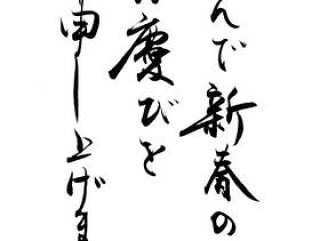 んで新春の
慶びを
申し上げま